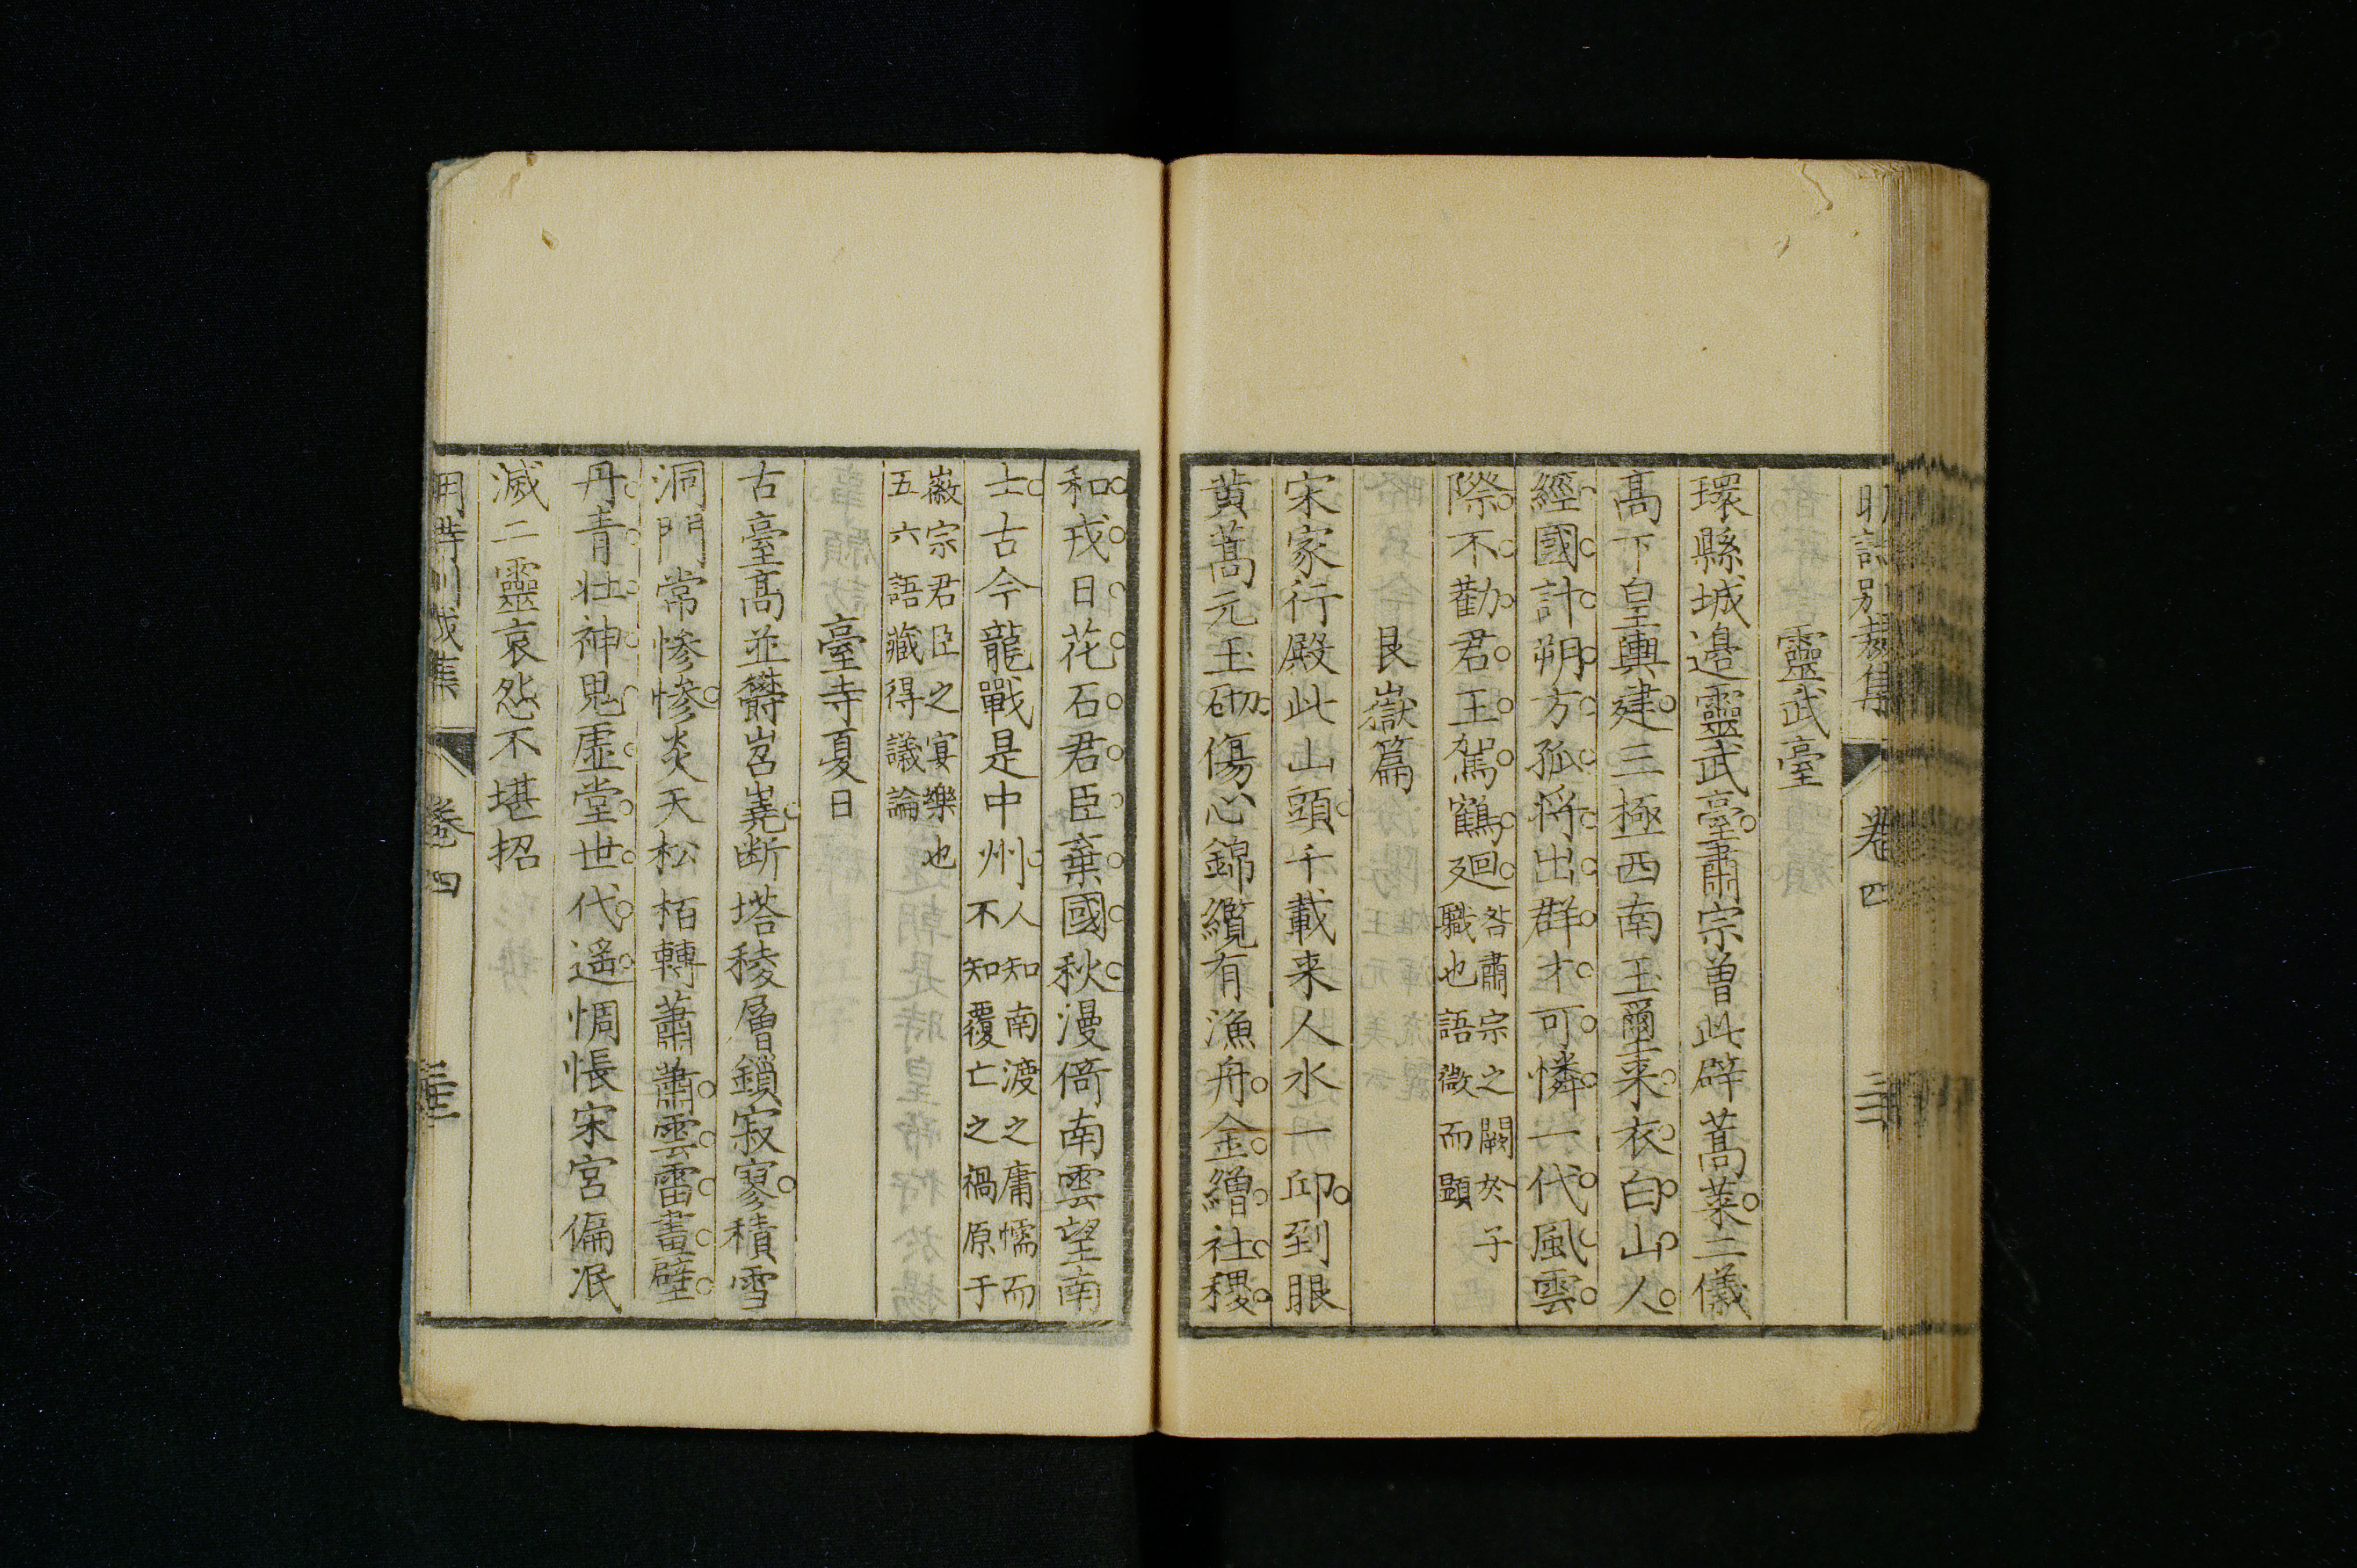 明詩別裁集 卷四
靈武臺
環縣城邉靈武臺肅宗曽此辟蒿萊二儀
髙下皇輿建三極西南玉璽来衣白山人
經國計朔方孤将出群才可憐一代風雲
際不勸君王駕鶴廻
咎肅宗之闕於子
職也語微而顕
艮嶽篇
宋家行殿此山頭千載来人水一邱到眼
黄蒿元玉砌傷心錦纜有漁舟金繒社稷
和戎日花石君臣棄國秋漫倚南雲望南
士古今龍戰是中州
人知南渡之庸懦而
不知覆亡之禍原于
徽宗君臣之宴樂也
五六語藏得議論
臺寺夏日
古臺髙並欝岧嶤断塔稜層鎖寂寥積雪
洞門常慘慘炎天松栢轉蕭蕭雲雷畫壁
丹青壮神鬼虚堂世代遥惆悵宋宮偏泯
滅二靈哀怨不堪招
明詩別裁集 卷四